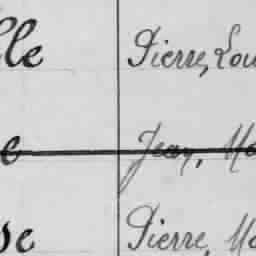 lle Pierre, Lou
e Jean, Ma
se Pierre, Ma